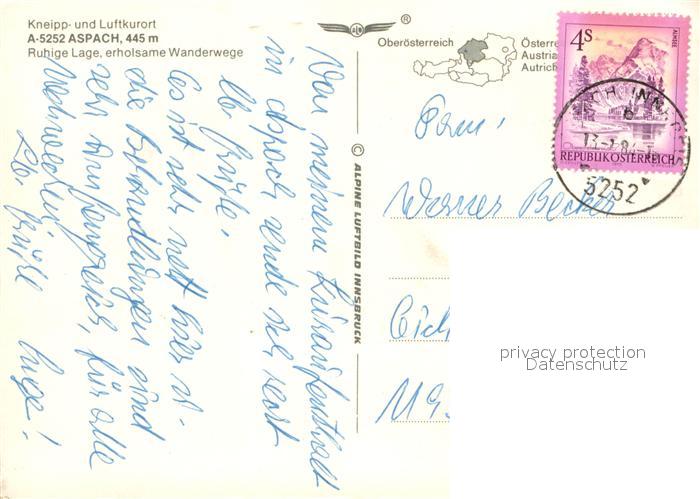 Kneipp- und Luftkurort
A-5252 ASPACH, 445 m
Ruhige Lage, erholsame Wanderwege
Von meinem Kuraufenthalt
in Aspach sende ich
lb. Grüße.
Es ist sehr nett hier u.
die Behandlungen sind
sehr für alle
Lb. Grüße
ALPINE LUFTBILD INNSBRUCK
®
Oberösterreich
Österre
Austria
Autrich
4 S
ALMSEE
REPUBLIK ÖSTERREICH
5252
b
Fam.
Werner Becker
privacy protection
Datenschutz